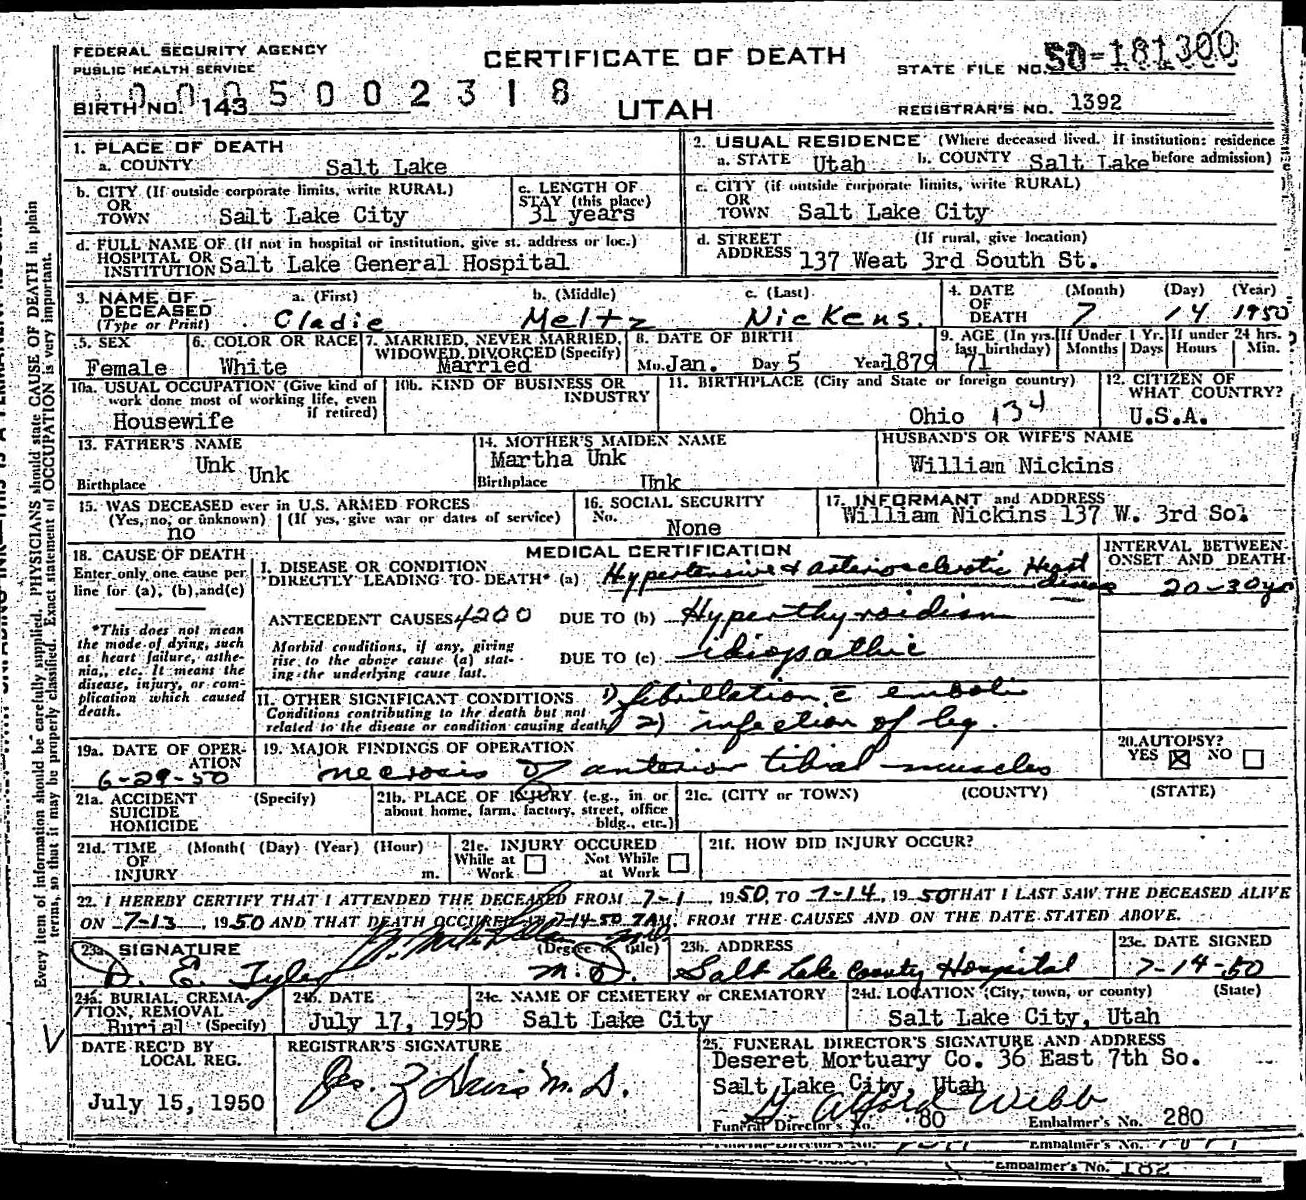 FEDERAL SECURITY AGENCY
PUBLIC HEALTH SERVICE
CERTIFICATE OF DEATH
STATE FILE NO. 50-181300
BIRTH NO. 143
0005002318
UTAH
REGISTRAR'S NO. 1392
1. PLACE OF DEATH
a. COUNTY Salt Lake
2. USUAL RESIDENCE (Where deceased lived. If institution: residence before admission)
a. STATE Utah b. COUNTY Salt Lake
b. CITY (If outside corporate limits, write RURAL)
OR
TOWN Salt Lake City
c. LENGTH OF
STAY (this place)
31 years
c. CITY (if outside corporate limits, write RURAL)
OR
TOWN Salt Lake City
d. FULL NAME OF (If not in hospital or institution, give st. address or loc.)
HOSPITAL OR
INSTITUTION Salt Lake General Hospital
d. STREET (If rural, give location)
ADDRESS 137 Weat 3rd South St.
3. NAME OF
DECEASED
(Type or Print)
a. (First) b. (Middle) c. (Last)
Cladie Meltz Nickens.
4. DATE
OF
DEATH
(Month) (Day) (Year)
7 14 1950
5. SEX
Female
6. COLOR OR RACE
White
7. MARRIED, NEVER MARRIED,
WIDOWED, DIVORCED (Specify)
Married
8. DATE OF BIRTH
Mo. Jan. Day 5 Year 1879
9. AGE (In yrs. last birthday)
71
If Under 1 Yr.
Months Days
If under 24 hrs.
Hours Min.
10a. USUAL OCCUPATION (Give kind of
work done most of working life, even
if retired)
Housewife
10b. KIND OF BUSINESS OR
INDUSTRY
11. BIRTHPLACE (City and State or foreign country)
Ohio 134
12. CITIZEN OF
WHAT COUNTRY?
U.S.A.
13. FATHER'S NAME
Unk
Birthplace Unk
14. MOTHER'S MAIDEN NAME
Martha Unk
Birthplace Unk
HUSBAND'S OR WIFE'S NAME
William Nickins
15. WAS DECEASED ever in U.S. ARMED FORCES
(Yes, no, or unknown) (If yes, give war or dates of service)
no
16. SOCIAL SECURITY
No. None
17. INFORMANT and ADDRESS
William Nickins 137 W. 3rd So.
18. CAUSE OF DEATH
Enter only one cause per
line for (a), (b), and (c)
*This does not mean
the mode of dying, such
as heart failure, asthe-
nia, etc. It means the
disease, injury, or com-
plication which caused
death.
MEDICAL CERTIFICATION
INTERVAL BETWEEN
ONSET AND DEATH
I. DISEASE OR CONDITION
DIRECTLY LEADING TO DEATH* (a) Hypertensive & arteriosclerotic Heart disease 20-30 yr
ANTECEDENT CAUSES 4200 DUE TO (b) Hyperthyroidism
Morbid conditions, if any, giving
rise to the above cause (a) stat-
ing the underlying cause last.
DUE TO (c) idiopathic
11. OTHER SIGNIFICANT CONDITIONS
Conditions contributing to the death but not
related to the disease or condition causing death
1) fibrillation c̄ emboli
2) infection of leg
19a. DATE OF OPER-
ATION
6-29-50
19. MAJOR FINDINGS OF OPERATION
necrosis of anterior tibial muscles
20. AUTOPSY?
YES ☒ NO ☐
21a. ACCIDENT (Specify)
SUICIDE
HOMICIDE
21b. PLACE OF INJURY (e.g., in or
about home, farm, factory, street, office
bldg., etc.)
21c. (CITY or TOWN) (COUNTY) (STATE)
21d. TIME (Month( (Day) (Year) (Hour)
OF
INJURY m.
21e. INJURY OCCURED
While at Work ☐ Not While at Work ☐
21f. HOW DID INJURY OCCUR?
22. I HEREBY CERTIFY THAT I ATTENDED THE DECEASED FROM 7-1, 1950, TO 7-14, 1950 THAT I LAST SAW THE DECEASED ALIVE
ON 7-13, 1950 AND THAT DEATH OCCURED AT 7-14-50 7AM, FROM THE CAUSES AND ON THE DATE STATED ABOVE.
23a. SIGNATURE (Degree or title)
D. E. Tyler M.D.
23b. ADDRESS
Salt Lake County Hospital
23c. DATE SIGNED
7-14-50
24a. BURIAL, CREMA-
TION, REMOVAL
Burial (Specify)
24b. DATE
July 17, 1950
24c. NAME OF CEMETERY or CREMATORY
Salt Lake City
24d. LOCATION (City, town, or county) (State)
Salt Lake City, Utah
DATE REC'D BY
LOCAL REG.
July 15, 1950
REGISTRAR'S SIGNATURE
Jos. Z Davis M.D.
25. FUNERAL DIRECTOR'S SIGNATURE AND ADDRESS
Deseret Mortuary Co. 36 East 7th So.
Salt Lake City, Utah
G Alford Webb
Funeral Director's No. 80 Embalmer's No. 280
Embalmer's No.
Embalmer's No. 182
Every item of information should be carefully supplied. PHYSICIANS should state CAUSE OF DEATH in plain
terms, so that it may be properly classified. Exact statement of OCCUPATION is very important.